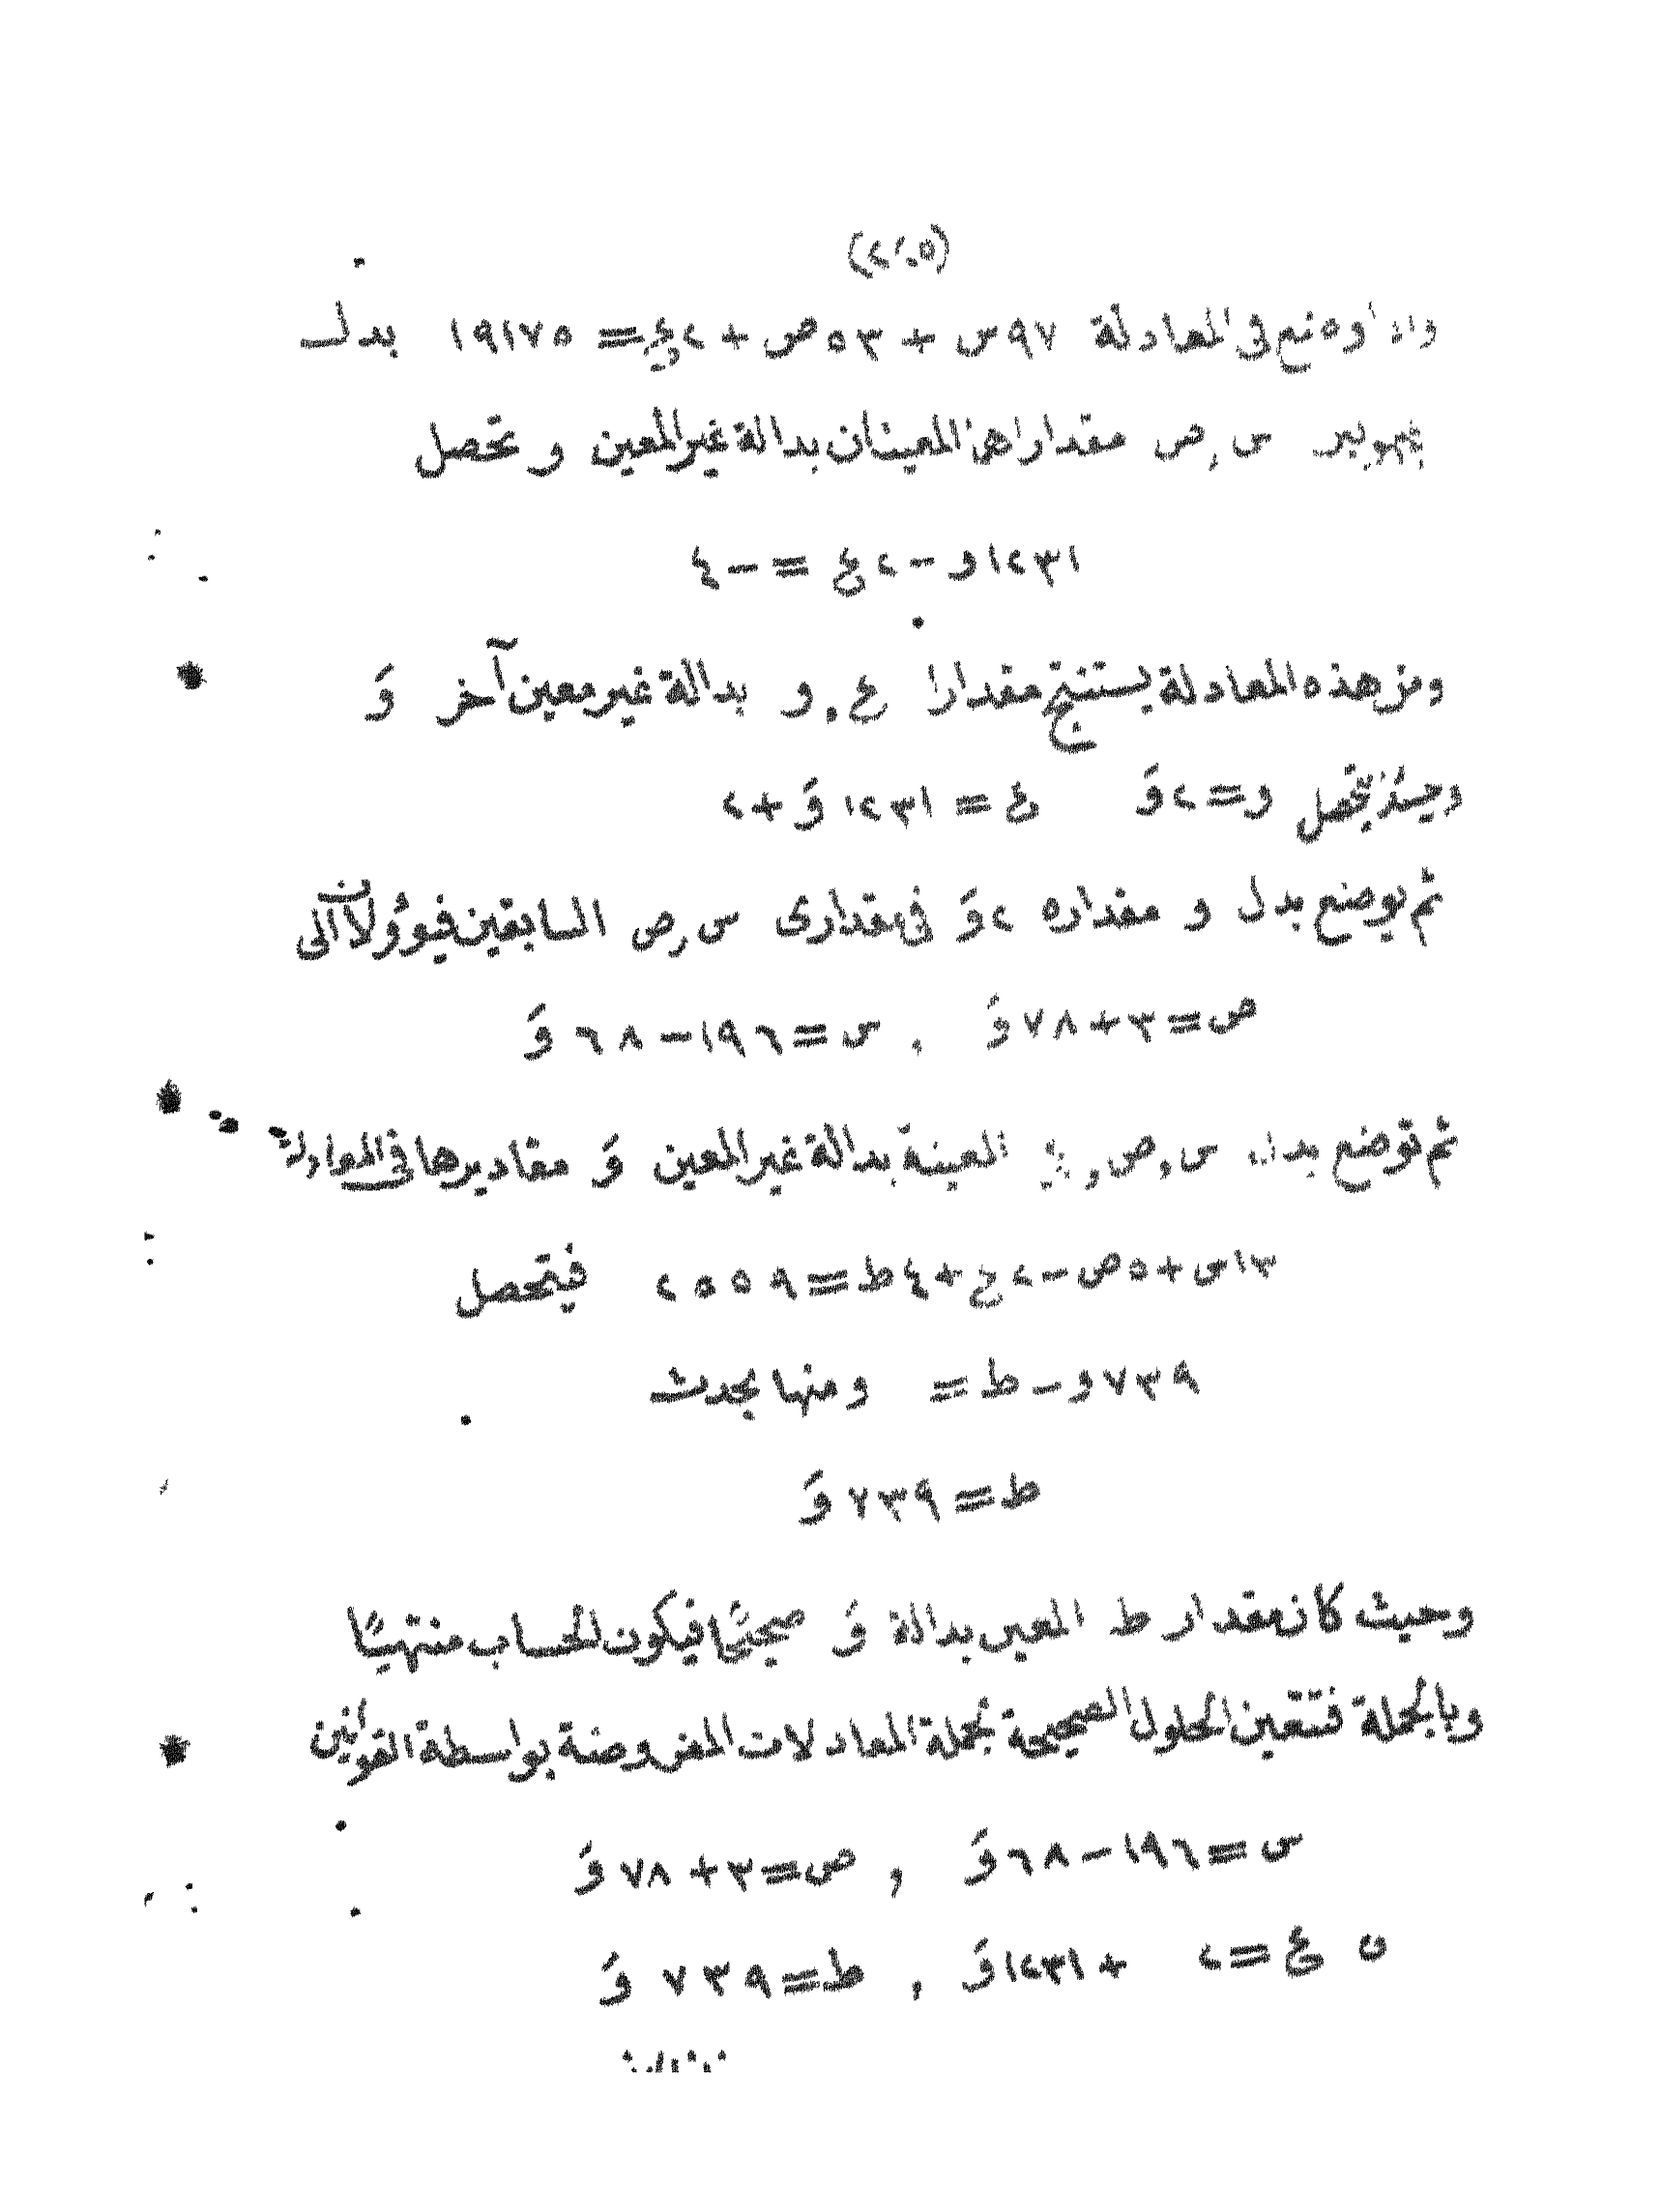 (٢٠٥)
واذا وضع فى المعادلة ٩٧س + ٥٣ص + ٢ع = ١٩١٧٥ بدل
س , ص مقداراهما المعينان بدالة غير المعين و تحصل
١٢٣١و - ٢ع = -٤
ومن هذه المعادلة يستنتج مقدارا ع , و بدالة غير معين آخر وَ
وحينئذ تحصل و = ٢وَ ع = ١٢٣١وَ + ٢
ثم يوضع بدل و مقداره ٢وَ فى مقدارى س , ص السابقين فيؤولان الى
ص = ٣ + ٧٨وَ , س = ١٩٦ - ٦٨وَ
ثم توضع بدل س , ص , المعينة بدالة غير المعين وَ مقاديرها فى المعادلة
١٣س + ٥ص - ٢ع + ٤ط = ٢٥٥٩ فيتحصل
٧٣٩و - ط = ومنها يحدث
ط = ٧٣٩وَ
وحيث كان مقدار ط المعين بدالة وَ صحيحًا فيكون الحساب منتهيًا
وبالجملة فتتعين الحلول الصحيحة لجملة المعادلات المفروضة بواسطة القوانين
س = ١٩٦ - ٦٨وَ , ص = ٣ + ٧٨وَ
ع = ٢ + ١٢٣١وَ , ط = ٧٣٩وَ